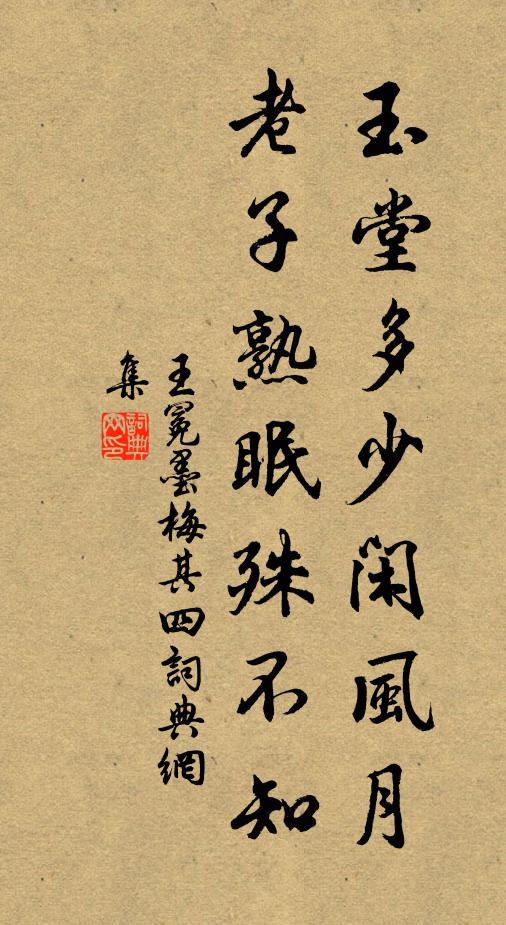 玉堂多少閑風月
老子熟眠殊不知
王冕墨梅其四詞典網
集
詞典
網印